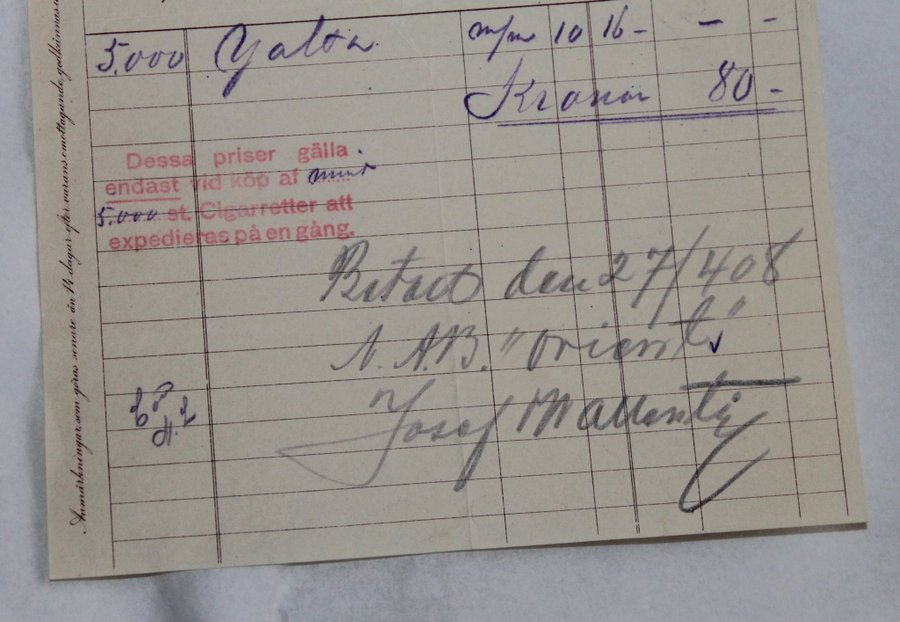 5.000 Yalta m/m 10 16 - - -
Kronor 80 -
Dessa priser gälla
endast vid köp af minst
5.000 st. Cigarretter att
expedieras på en gång.
Betalt den 27/4 08
A.B. "Orient"
Josef
Anmärkningar, som göras senare än 14 dagar efter varans emottagande, godkännas